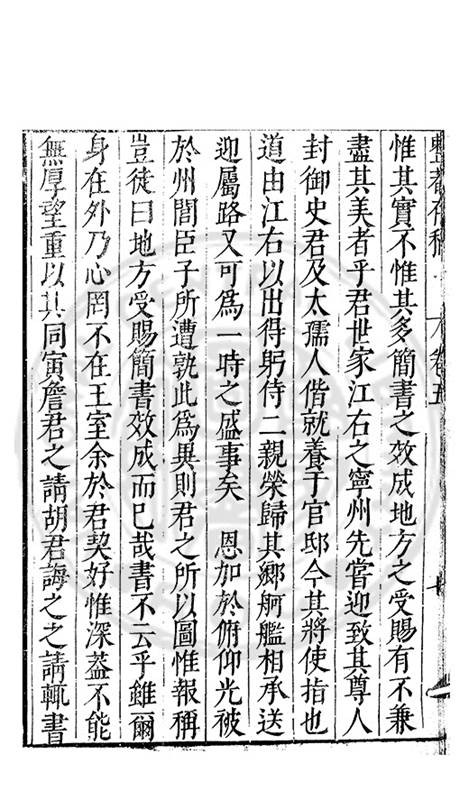 整菴存稿 卷五 十
惟其實不惟其多簡書之效成地方之受賜有不兼
盡其美者乎君世家江右之寧州先嘗迎致其尊人
封御史君及太孺人偕就養于官邸今其將使指也
道由江右以出得躬侍二親榮歸其鄉舸艦相承送
迎屬路又可為一時之盛事矣 恩加於俯仰光被
於州閭臣子所遭孰此為異則君之所以圖惟報稱
豈徒曰地方受賜簡書效成而已哉書不云乎雖爾
身在外乃心罔不在王室余於君契好惟深蓋不能
無厚望重以其同寅詹君之請胡君誨之之請輒書